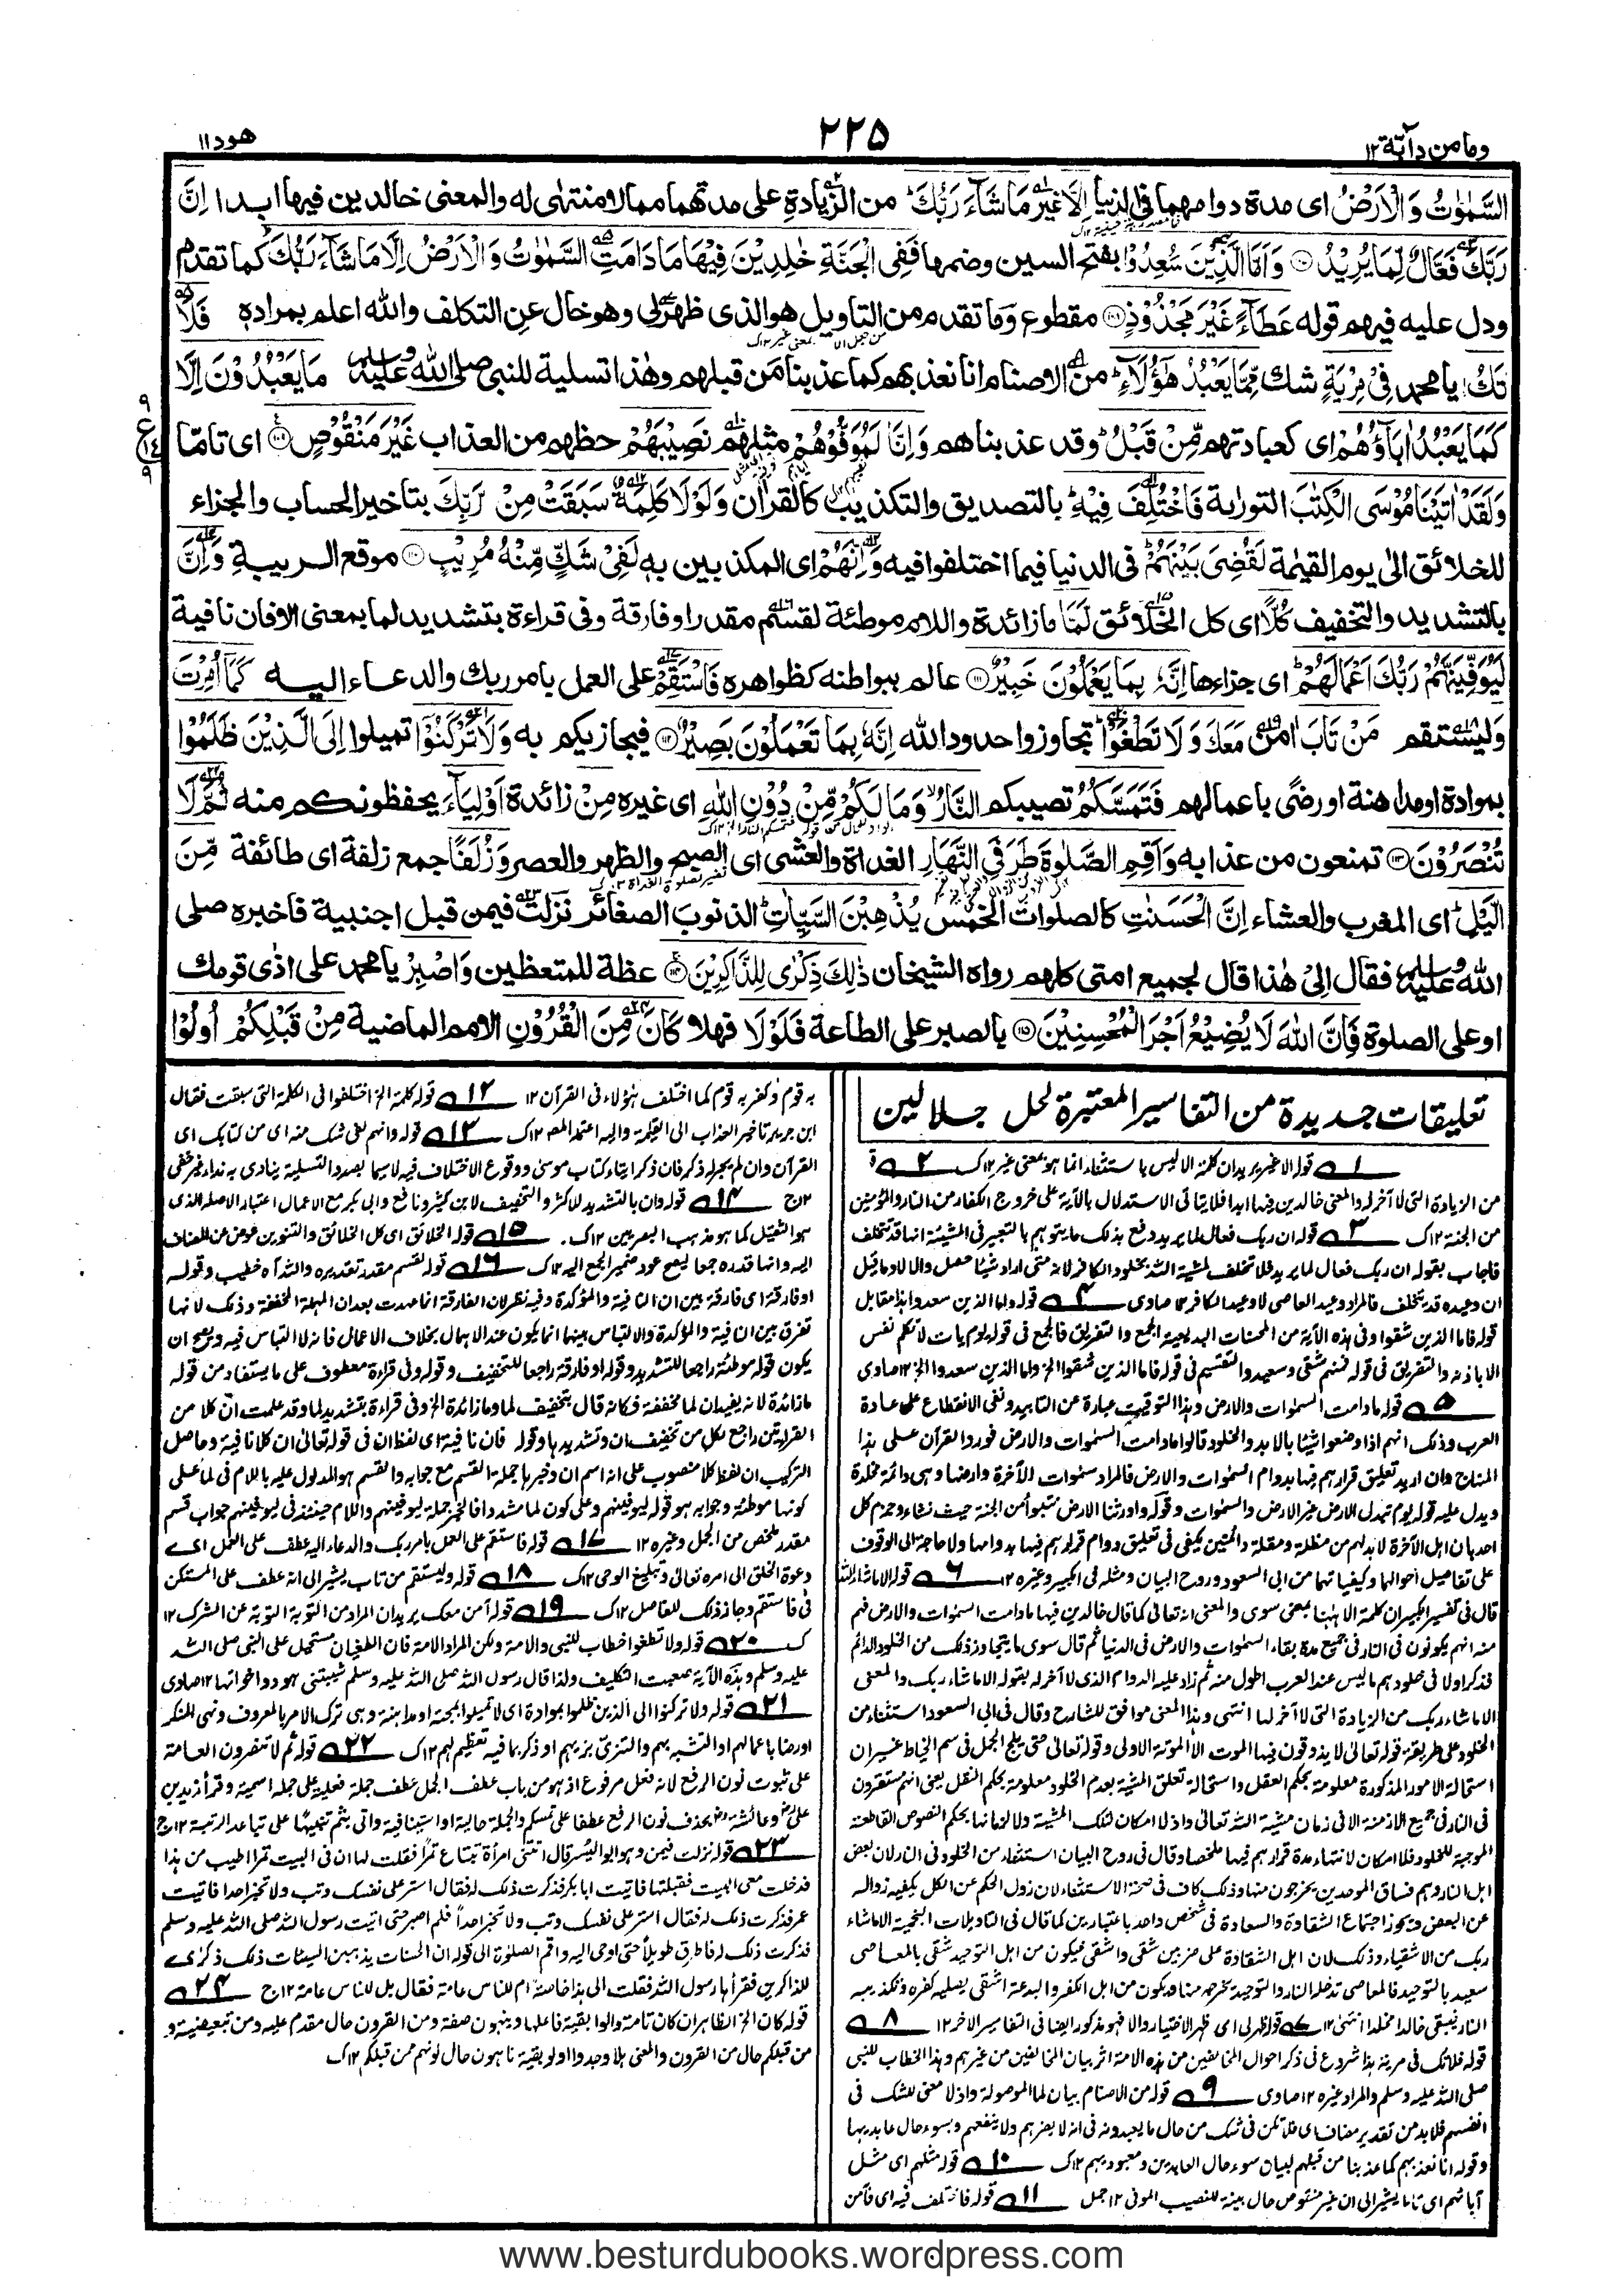 وما من دآبة ١٢
٢٢٥
هود ١١
السَّمٰوٰتُ وَالْاَرْضُ اى مدة دوامهما فى الدنيا اِلَّا غير مَا شَآءَ رَبُّكَ ؕ من الزيادة على مدتهما مما لا منتهى له والمعنى خالدين فيها ابدا اِنَّ
رَبَّكَ فَعَّالٌ لِّمَا يُرِيْدُ وَاَمَّا الَّذِيْنَ سُعِدُوْا بفتح السين وضمها فَفِى الْجَنَّةِ خٰلِدِيْنَ فِيْهَا مَا دَامَتِ السَّمٰوٰتُ وَالْاَرْضُ اِلَّا مَا شَآءَ رَبُّكَ ؕ كما تقدم
ودل عليه فيهم قوله عَطَآءً غَيْرَ مَجْذُوْذٍ مقطوع وما تقدم من التاويل هو الذى ظهر لى وهو خال عن التكلف والله اعلم بمراده فَلَا
تَكُ يا محمد فِىْ مِرْيَةٍ شك مِّمَّا يَعْبُدُ هٰٓؤُلَآءِ ؕ من الاصنام انا نعذبهم كما عذبنا من قبلهم وهٰذا تسلية للنبى صلى الله عليه وسلم مَا يَعْبُدُوْنَ اِلَّا
كَمَا يَعْبُدُ اٰبَآؤُهُمْ اى كعبادتهم مِّنْ قَبْلُ ؕ وقد عذبناهم وَاِنَّا لَمُوَفُّوْهُمْ مثلهم نَصِيْبَهُمْ حظهم من العذاب غَيْرَ مَنْقُوْصٍ اى تامّا
وَلَقَدْ اٰتَيْنَا مُوْسَى الْكِتٰبَ التورٰىة فَاخْتُلِفَ فِيْهِ ؕ بالتصديق والتكذيب كالقراٰن وَلَوْلَا كَلِمَةٌ سَبَقَتْ مِنْ رَّبِّكَ بتاخير الحساب والجزاء
للخلائق الى يوم القيٰمة لَقُضِىَ بَيْنَهُمْ ؕ فى الدنيا فيما اختلفوا فيه وَاِنَّهُمْ اى المكذبين به لَفِىْ شَكٍّ مِّنْهُ مُرِيْبٍ موقع الريبة وَاِنَّ
بالتشديد والتخفيف كُلًّا اى كل الخلائق لَّمَّا ما زائدة واللام موطئة لقسم مقدر او فارقة وفى قراءة بتشديد لما بمعنى الا فان نافية
لَيُوَفِّيَنَّهُمْ رَبُّكَ اَعْمَالَهُمْ ؕ اى جزاءها اِنَّهٗ بِمَا يَعْمَلُوْنَ خَبِيْرٌ عالم ببواطنه كظواهره فَاسْتَقِمْ على العمل بامر ربك والدعاء اليه كَمَآ اُمِرْتَ
وَ ليستقم مَنْ تَابَ اٰمن مَعَكَ وَلَا تَطْغَوْا ؕ تجاوزوا حدود الله اِنَّهٗ بِمَا تَعْمَلُوْنَ بَصِيْرٌ فيجازيكم به وَلَا تَرْكَنُوْٓا تميلوا اِلَى الَّذِيْنَ ظَلَمُوْا
بموادة او مداهنة او رضًى باعمالهم فَتَمَسَّكُمُ تصيبكم النَّارُ ۙ وَمَا لَكُمْ مِّنْ دُوْنِ اللّٰهِ اى غيره مِنْ زائدة اَوْلِيَآءَ يحفظونكم منه ثُمَّ لَا
تُنْصَرُوْنَ تمنعون من عذابه وَاَقِمِ الصَّلٰوةَ طَرَفَىِ النَّهَارِ الغداة والعشى اى الصبح والظهر والعصر وَزُلَفًا جمع زلفة اى طائفة مِّنَ
الَّيْلِ ؕ اى المغرب والعشاء اِنَّ الْحَسَنٰتِ كالصلوات الخمس يُذْهِبْنَ السَّيِّاٰتِ ؕ الذنوب الصغائر نزلت فيمن قبل اجنبية فاخبره صلى
الله عليه وسلم فقال الىّ هٰذا قال لجميع امتى كلهم رواه الشيخان ذٰلِكَ ذِكْرٰى لِلذّٰكِرِيْنَ عظة للمتعظين وَاصْبِرْ يا محمد على اذٰى قومك
او على الصلوة فَاِنَّ اللّٰهَ لَا يُضِيْعُ اَجْرَ الْمُحْسِنِيْنَ بالصبر على الطاعة فَلَوْلَا فهلا كَانَ مِنَ الْقُرُوْنِ الامم الماضية مِنْ قَبْلِكُمْ اُولُوْا
تعليقات جديدة من التفاسير المعتبرة لحل جلالين
١ قوله الا غير يريد ان كلمة الا ليس باستثناء انما هو بمعنى غير ١٢ك ٢ ق
من الزيادة التى لا آخر له والمعنى خالدين فيها ابدا فلا يتأتى الاستدلال بالآية على خروج الكفار من النار والمؤمنين
من الجنة ١٢ك ٣ قوله ان ربك فعال لما يريد دفع بذلك ما يتوهم بالتعبير فى المشيئة انها قد تتخلف
فاجاب بقوله ان ربك فعال لما يريد فلا تخلف لمشية الله بخلود الكافر لانه متى اراد شيئا حصل
ان وعيده قد يتخلف فالمراد وعيد العاصى لا وعيد الكافر ١٢ صاوى ٤ قوله واما الذين سعدوا هذا مقابل
قوله فاما الذين شقوا وفى هذه الآية من المحسنات البديعية الجمع والتفريق فالجمع فى قوله يوم يات لا تكلم نفس
الا باذنه والتفريق فى قوله فمنهم شقى وسعيد والتقسيم فى قوله فاما الذين شقوا الخ واما الذين سعدوا الخ ١٢ صاوى
٥ قوله ما دامت السموات والارض وهذا التوقيت عبارة عن التابيد ونفى الانقطاع على عادة
العرب وذلك انهم اذا وصفوا شيئا بالابد والخلود قالوا ما دامت السموات والارض فورد القرآن على هذا
المنهاج وان اريد تعليق قرارهم فيها بدوام السموات والارض فالمراد سموات الآخرة وارضها وهى دائمة مخلدة
ويدل عليه قوله يوم تبدل الارض غير الارض والسموات وقوله واورثنا الارض نتبوأ من الجنة حيث نشاء وجزم كل
احد بان اهل الآخرة لا بد لهم من مظلة ومقلة
على تفاصيل احوالها وكيفياتها من ابى السعود وروح البيان ومثله فى الكبير وغيره ١٢ ٦ قوله الا ما شاء الله
قال فى تفسير الكبير ان كلمة الا ههنا بمعنى سوى والمعنى انه تعالى لما قال خالدين فيها ما دامت السموات والارض فهم
منه انهم يكونون فى النار فى جميع مدة بقاء السموات والارض فى الدنيا ثم قال سوى ما يتجاوز ذلك من الخلود الدائم
فذكر اولا فى خلودهم ما ليس عند العرب اطول منه ثم زاد عليه الدوام الذى لا آخر له بقوله الا ما شاء ربك والمعنى
الا ما شاء ربك من الزيادة التى لا آخر لها انتهى وهذا المعنى موافق للشارح وقال فى ابى السعود استثناء من
الخلود على طريقة قوله تعالى لا يذوقون فيها الموت الا الموتة الاولى وقوله تعالى حتى يلج الجمل فى سم الخياط غير ان
استحالة الامور المذكورة معلومة بحكم العقل واستحالة تعلق المشية بعدم الخلود معلومة بحكم النقل يعنى انهم مستقرون
فى النار فى جميع الازمنة الا فى زمان مشية الله تعالى واذ لا امكان لتلك المشية ولا لزمانها بحكم النصوص القاطعة
الموجبة للخلود فلا امكان لانتهاء مدة قرارهم فيها ملخصا وقال فى روح البيان استثناء من الخلود فى النار لان بعض
اهل النار وهم فساق الموحدين يخرجون منها وذلك كاف فى صحة الاستثناء لان زوال الحكم عن الكل يكفيه زواله
عن البعض ويجوز اجتماع الشقاوة والسعادة فى شخص واحد باعتبارين كما قال فى التاويلات النجمية الا ما شاء
ربك من الاشقياء وذلك لان اهل الشقاوة على ضربين شقى واشقى فيكون من اهل التوحيد شقى بالمعاصى
سعيد بالتوحيد فالمعاصى تدخله النار والتوحيد يخرجه منها ويكون من اهل الكفر والبدعة اشقى يصليه كفره وتكذيبه
النار فيبقى خالدا مخلدا انتهى ١٢ ٧ قوله ظهر لى اى ظهر الاختيار والا فهو مذكور ايضا فى التفاسير الاخر ١٢ ٨
قوله فلا تك فى مرية هذا شروع فى ذكر احوال المخالفين من هذه الامة اثر بيان المخالفين من غيرهم وهذا الخطاب للنبى
صلى الله عليه وسلم والمراد غيره ١٢ صاوى ٩ قوله من الاصنام بيان لما الموصولة واذ لا معنى للشك فى
انفسهم فلا بد من تقدير مضاف اى فلا تكن فى شك من حال ما يعبدونه فى انه لا يضرهم ولا ينفعهم وبسوء حال عابديها
وقوله انا نعذبهم كما عذبنا من قبلهم لبيان سوء حال العابدين ومعبوديهم ١٢ك ١٠ قوله مثلهم اى مثل
آبائهم اى تاما يشير الى ان غير منقوص حال مبينة للنصيب الموفى ١٢ جمل ١١ قوله فاختلف فيه اى فآمن
به قوم وكفر به قوم كما اختلف هؤلاء فى القرآن ١٢ ١٢ قوله كلمة الخ اختلفوا فى الكلمة التى سبقت فقال
ابن جرير تاخير العذاب الى القيٰمة واليه اعتمد المص ١٢ك ١٣ قوله وانهم لفى شك منه اى من كتابك اى
القرآن وان لم يجر له ذكر فان ذكر ايتاء كتاب موسى ووقوع الاختلاف فيه لا سيما بصدد التسلية ينادى به نداء غير خفى
١٢ج ١٤ قوله وان بالتشديد للاكثر والتخفيف لابن كثير ونافع وابى بكر مع الاعمال اعتبارا لاصله الذى
هو التثقيل كما هو مذهب البصريين ١٢ك ١٥ قوله الخلائق اى كل الخلائق والتنوين عوض عن المضاف
اليه وانما قدره جمعا ليصح عود ضمير الجمع اليه ١٢ك ١٦ قوله لقسم مقدر تقديره والله اه خطيب وقوله
او فارقة اى فارقة بين ان النافية والمؤكدة وفيه نظر لان الفارقة انما عهدت بعد ان المهملة المخففة وذلك لانها
تفرق بين النافية والمؤكدة والالتباس بينهما انما يكون عند الاهمال بخلاف الاعمال فانه لا التباس فيه ويصح ان
يكون قوله موطئة راجعا للتشديد وقوله او فارقة راجعا للتخفيف وقوله وفى قراءة معطوف على ما يستفاد من قوله
ما زائدة لانه يفيد ان لما مخففة فكانه قال بتخفيف لما وما زائدة الخ وفى قراءة بتشديد لما وقد علمت ان كلا من
القراءتين راجع لكل من تخفيف ان وتشديدها وقوله فان نافية اى لفظ ان فى قوله تعالى ان كلا نافية وحاصل
التركيب ان لفظ كلا منصوب على انه اسم ان وخبرها جملة القسم مع جوابه والقسم هو المدلول عليه باللام فى لما على
كونها موطئة وجوابه هو قوله ليوفينهم وعلى كون لما مشددا فالخبر جملة ليوفينهم واللام حينئذ فى ليوفينهم جواب قسم
مقدر ملخص من الجمل وغيره ١٢ ١٧ قوله فاستقم على العمل بامر ربك والدعاء اليه عطف على العمل اى
دعوة الخلق الى امره تعالى وتبليغ الوحى ١٢ك ١٨ قوله وليستقم من تاب يشير الى انه عطف على المستكن
فى فاستقم وجاز ذلك للفاصل ١٢ك ١٩ قوله آمن معك يريد ان المراد من التوبة التوبة عن الشرك ١٢
ك ٢٠ قوله ولا تطغوا خطاب للنبى والامة ولكن المراد الامة فان الطغيان مستحيل على النبى صلى الله
عليه وسلم وهذه الآية صعبت التكليف ولذا قال رسول الله صلى الله عليه وسلم شيبتنى هود واخواتها ١٢ صاوى
٢١ قوله ولا تركنوا الى الذين ظلموا بموادة اى لا تميلوا بمحبة او مداهنة وهى ترك الامر بالمعروف ونهى المنكر
او رضا باعمالهم او التشبه بهم والتزيى بزيهم او ذكر بما فيه تعظيم لهم ١٢ك ٢٢ قوله ثم لا تنصرون العامة
على ثبوت نون الرفع لانه فعل مرفوع اذ هو من باب عطف الجمل عطف جملة فعلية على جملة اسمية وقرأ زيد بن
على وعائشة بحذف نون الرفع عطفا على تمسكم والجملة حالية او استينافية واتى بثم تنبيها على تباعد الرتبة ١٢ج
٢٣ قوله نزلت فيمن وهو ابو اليسر قال اتتنى امرأة تبتاع تمرا فقلت لها ان فى البيت تمرا اطيب من هذا
فدخلت معى البيت فقبلتها فاتيت ابا بكر فذكرت ذلك له فقال استر على نفسك وتب ولا تخبر احدا فاتيت
عمر فذكرت ذلك له فقال استر على نفسك وتب ولا تخبر احدا فلم اصبر حتى اتيت رسول الله صلى الله عليه وسلم
فذكرت ذلك له فاطرق طويلا حتى اوحى اليه واقم الصلوة الى قوله ان الحسنات يذهبن السيئات ذلك ذكرى
للذاكرين فقرأها رسول الله فقلت الى هذا خاصة ام للناس عامة فقال بل للناس عامة ١٢ج ٢٤
قوله كان الخ الظاهر ان كان تامة واولوا بقية فاعلها وينهون صفة ومن القرون حال مقدم عليه ومن تبعيضية و
من قبلكم حال من القرون والمعنى هلا وجدوا اولو بقية ناهون حال كونهم من قبلكم ١٢ك
www.besturdubooks.wordpress.com